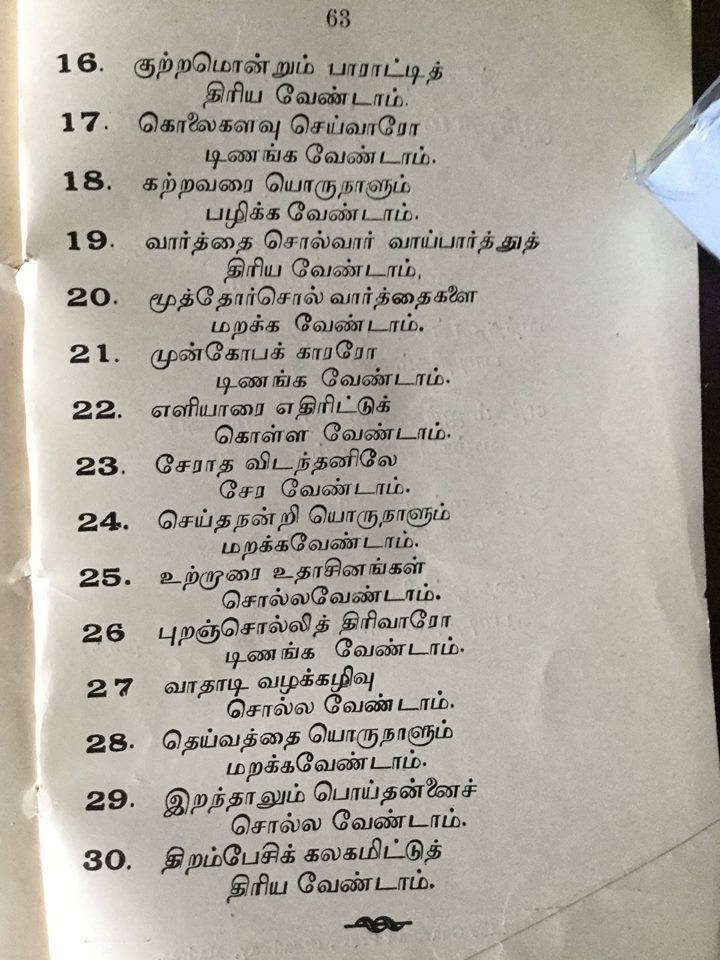 63
16. குற்றமொன்றும் பாராட்டித்
திரிய வேண்டாம்.
17. கொலைகளவு செய்வாரோ
டிணங்க வேண்டாம்.
18. கற்றவரை யொருநாளும்
பழிக்க வேண்டாம்.
19. வார்த்தை சொல்வார் வாய்பார்த்துத்
திரிய வேண்டாம்,
20. மூத்தோர்சொல் வார்த்தைகளை
மறக்க வேண்டாம்.
21. முன்கோபக் காரரோ
டிணங்க வேண்டாம்.
22. எளியாரை எதிரிட்டுக்
கொள்ள வேண்டாம்.
23. சேராத விடந்தனிலே
சேர வேண்டாம்.
24. செய்தநன்றி யொருநாளும்
மறக்கவேண்டாம்.
25. உற்றூரை உதாசினங்கள்
சொல்லவேண்டாம்.
26 புறஞ்சொல்லித் திரிவாரோ
டிணங்க வேண்டாம்.
27 வாதாடி வழக்கழிவு
சொல்ல வேண்டாம்.
28. தெய்வத்தை யொருநாளும்
மறக்கவேண்டாம்.
29. இறந்தாலும் பொய்தன்னைச்
சொல்ல வேண்டாம்.
30. திறம்பேசிக் கலகமிட்டுத்
திரிய வேண்டாம்.